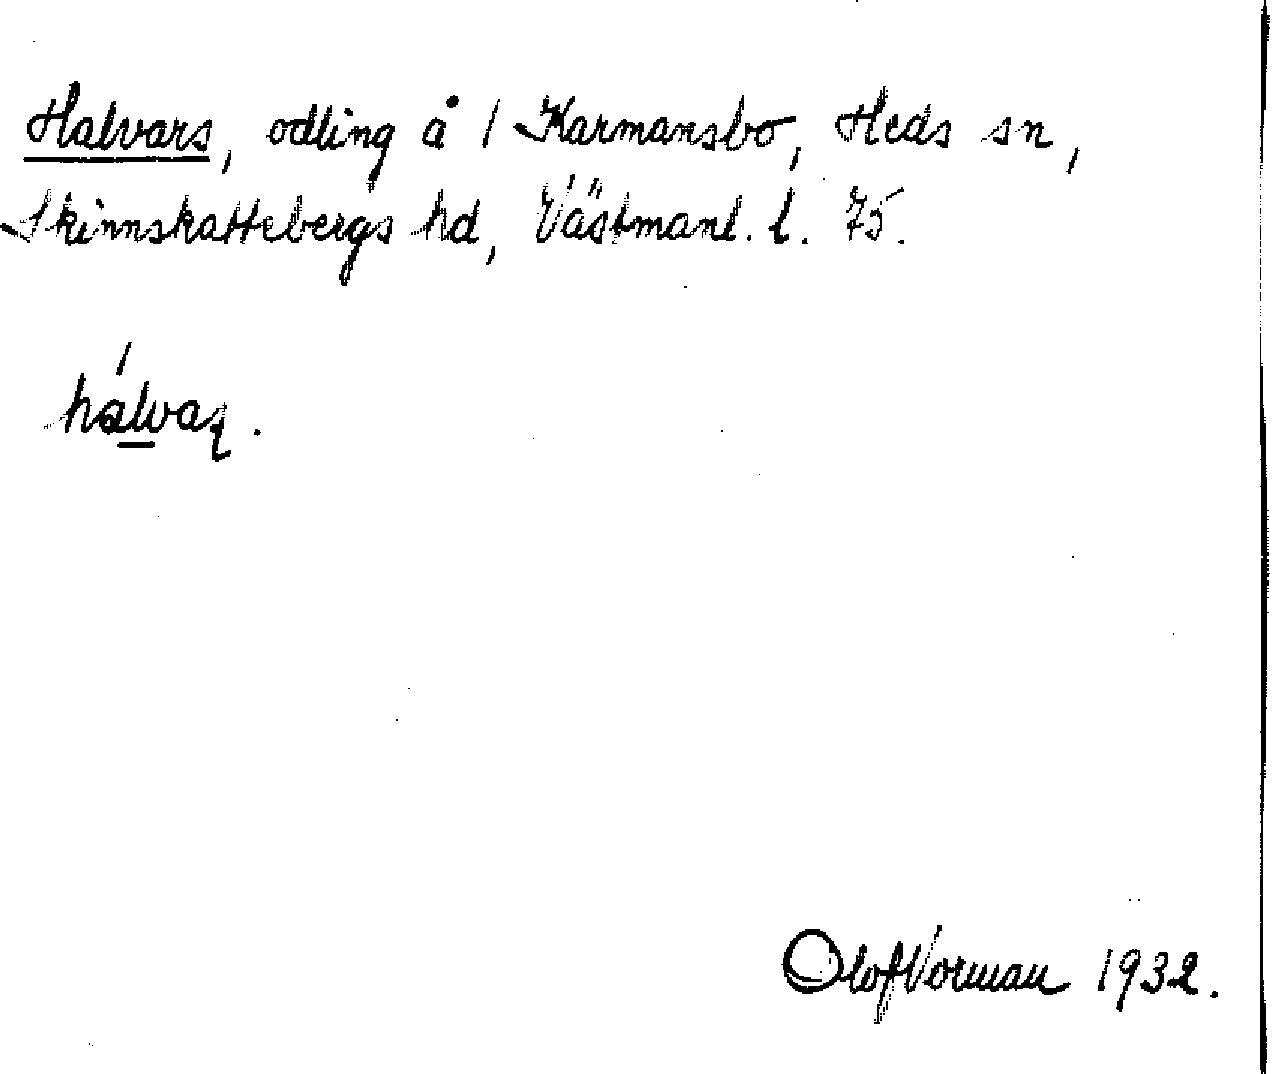 Halvars, odling å 1 Karmansbo, Heds sn,
Skinnskattebergs hd, Västmanl. l. 75.
Olof Vorman 1932.